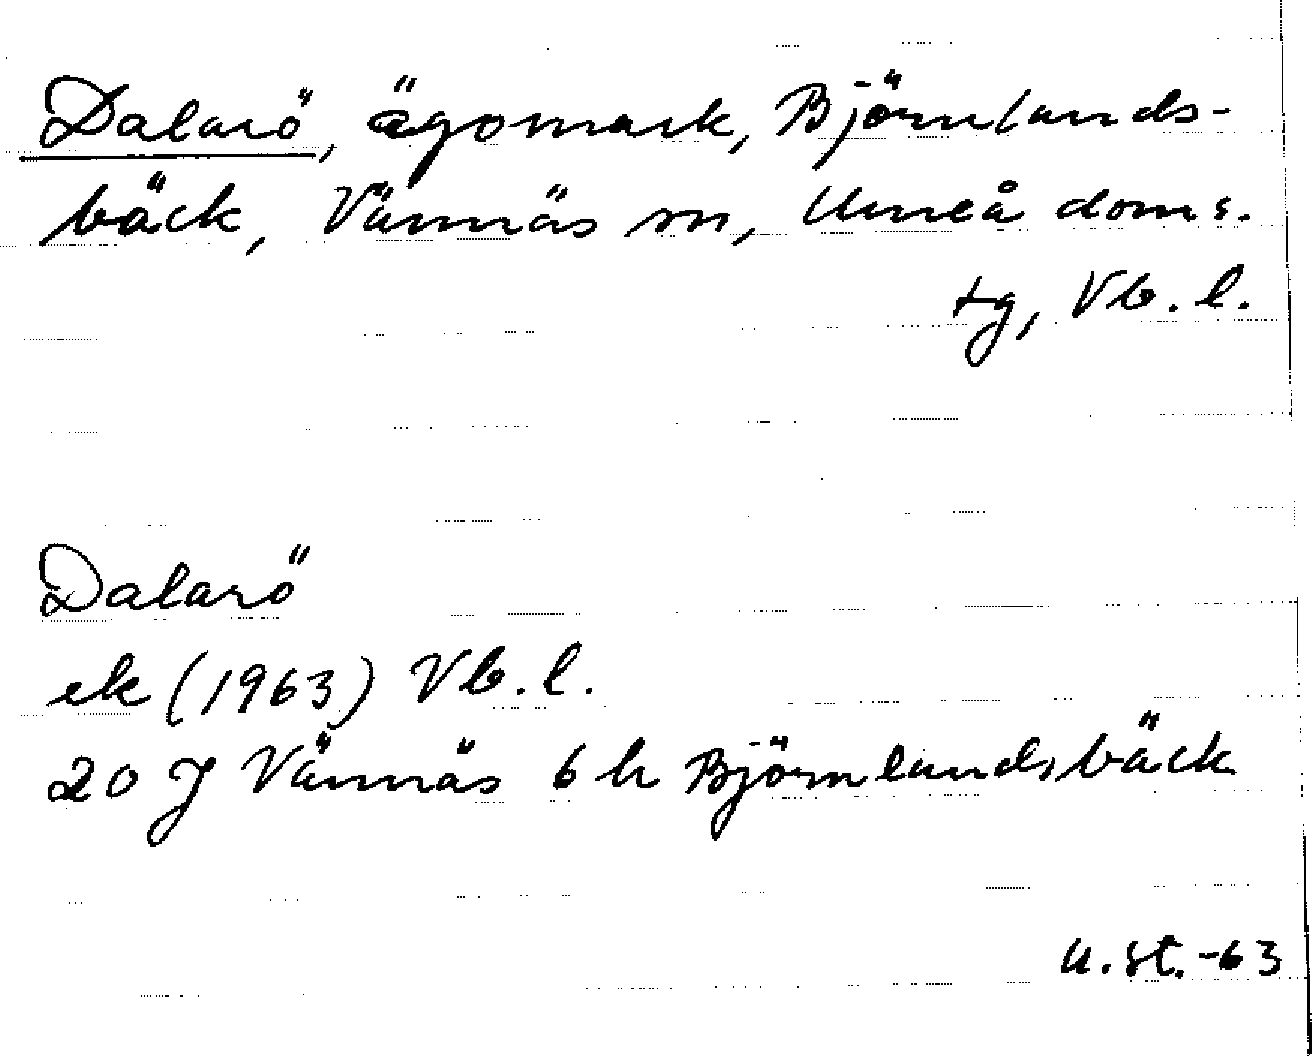 Dalarö, ägomark, Björnlands-
bäck, Vännäs sn, Umeå doms.
tg, Vb. l.
Dalarö
ek (1963) Vb. l.
20 J Vännäs 6 h Björnlandsbäck
U. St. -63